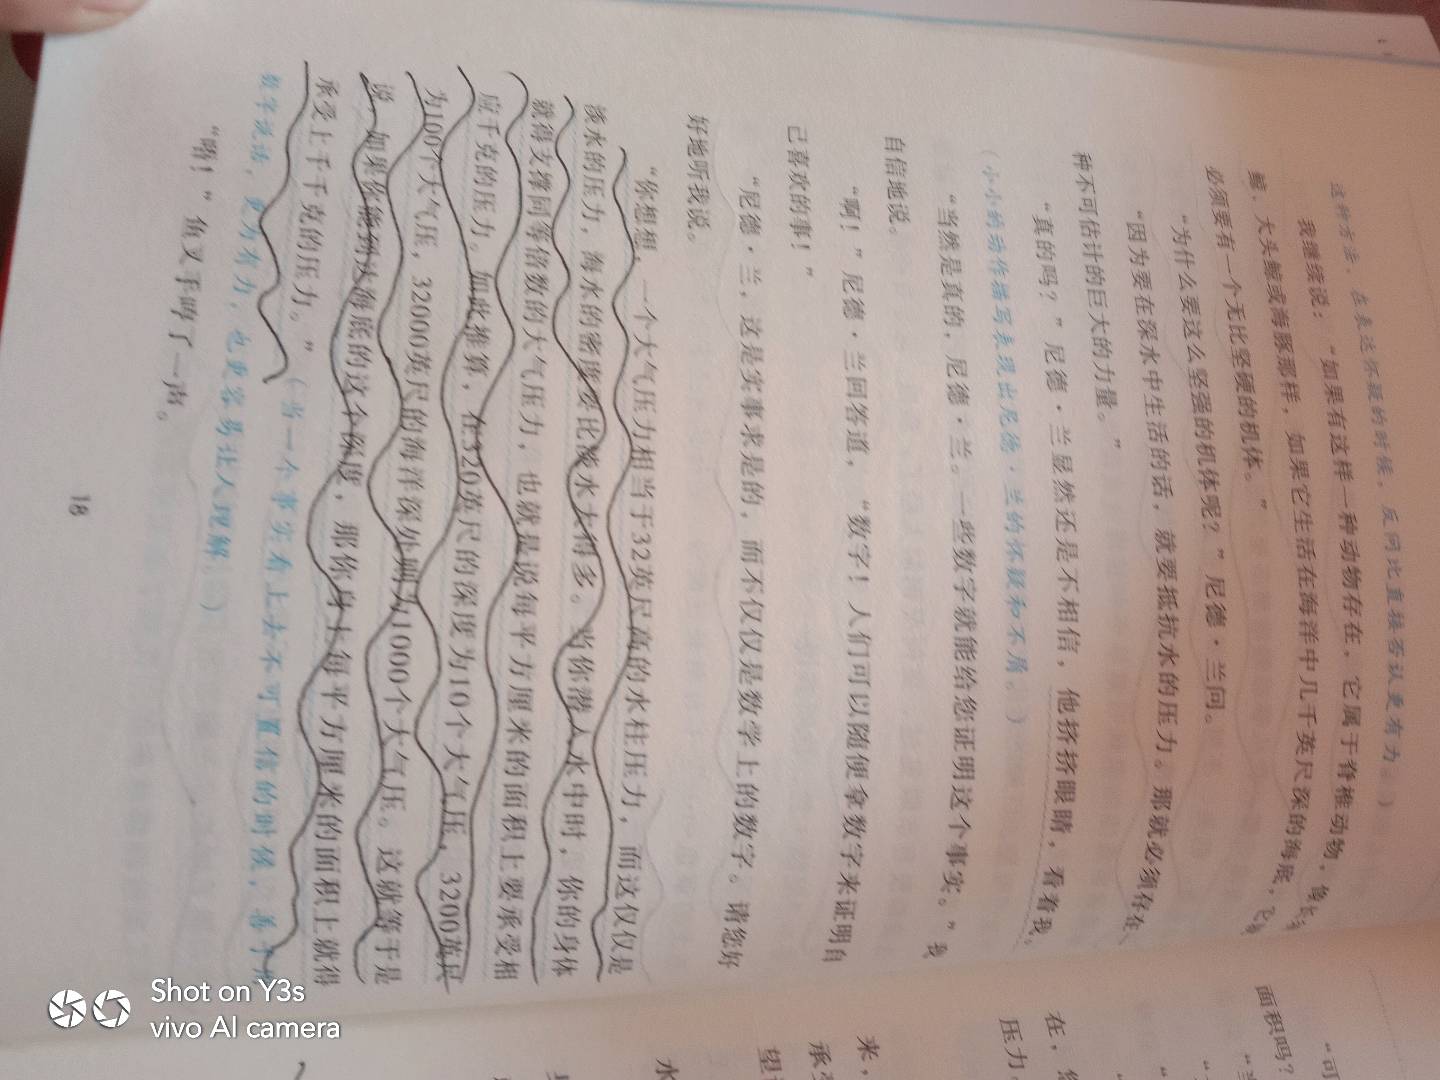 这种方法，在表达怀疑的时候，反问比直接否认更有力。）
我继续说：“如果有这样一种动物存在，它属于脊椎动物，像长
鲸、大头鲸或海豚那样，如果它生活在海洋中几千英尺深的海底，它
必须要有一个无比坚硬的机体。”
“为什么要这么坚强的机体呢？”尼德·兰问。
“因为要在深水中生活的话，就要抵抗水的压力。那就必须存在
种不可估计的巨大的力量。”
“真的吗？”尼德·兰显然还是不相信，他挤挤眼睛，看着我。
（小小的动作描写表现出尼德·兰的怀疑和不屑。）
“当然是真的，尼德·兰。一些数字就能给您证明这个事实。”我
自信地说。
“啊！”尼德·兰回答道，“数字！人们可以随便拿数字来证明自
己喜欢的事！”
“尼德·兰，这是实事求是的，而不仅仅是数学上的数字。请您好
好地听我说。
“你想想，一个大气压力相当于32英尺高的水柱压力，而这仅仅是
淡水的压力，海水的密度要比淡水大得多。当你潜入水中时，你的身体
就得支撑同等倍数的大气压力，也就是说每平方厘米的面积上要承受相
应千克的压力。如此推算，在320英尺的深度为10个大气压，3200英尺
为100个大气压，32000英尺的海洋深处则为1000个大气压。这就等于是
说，如果你能到达海底的这个深度，那你身上每平方厘米的面积上就得
承受上千千克的压力。”（当一个事实看上去不可置信的时候，善于用
数字说话，更为有力，也更容易让人理解。）
“唔！”鱼叉手哼了一声。
18
“可
面积吗？
在，
压力，
来，
承受
望
水
Shot on Y3s
vivo AI camera